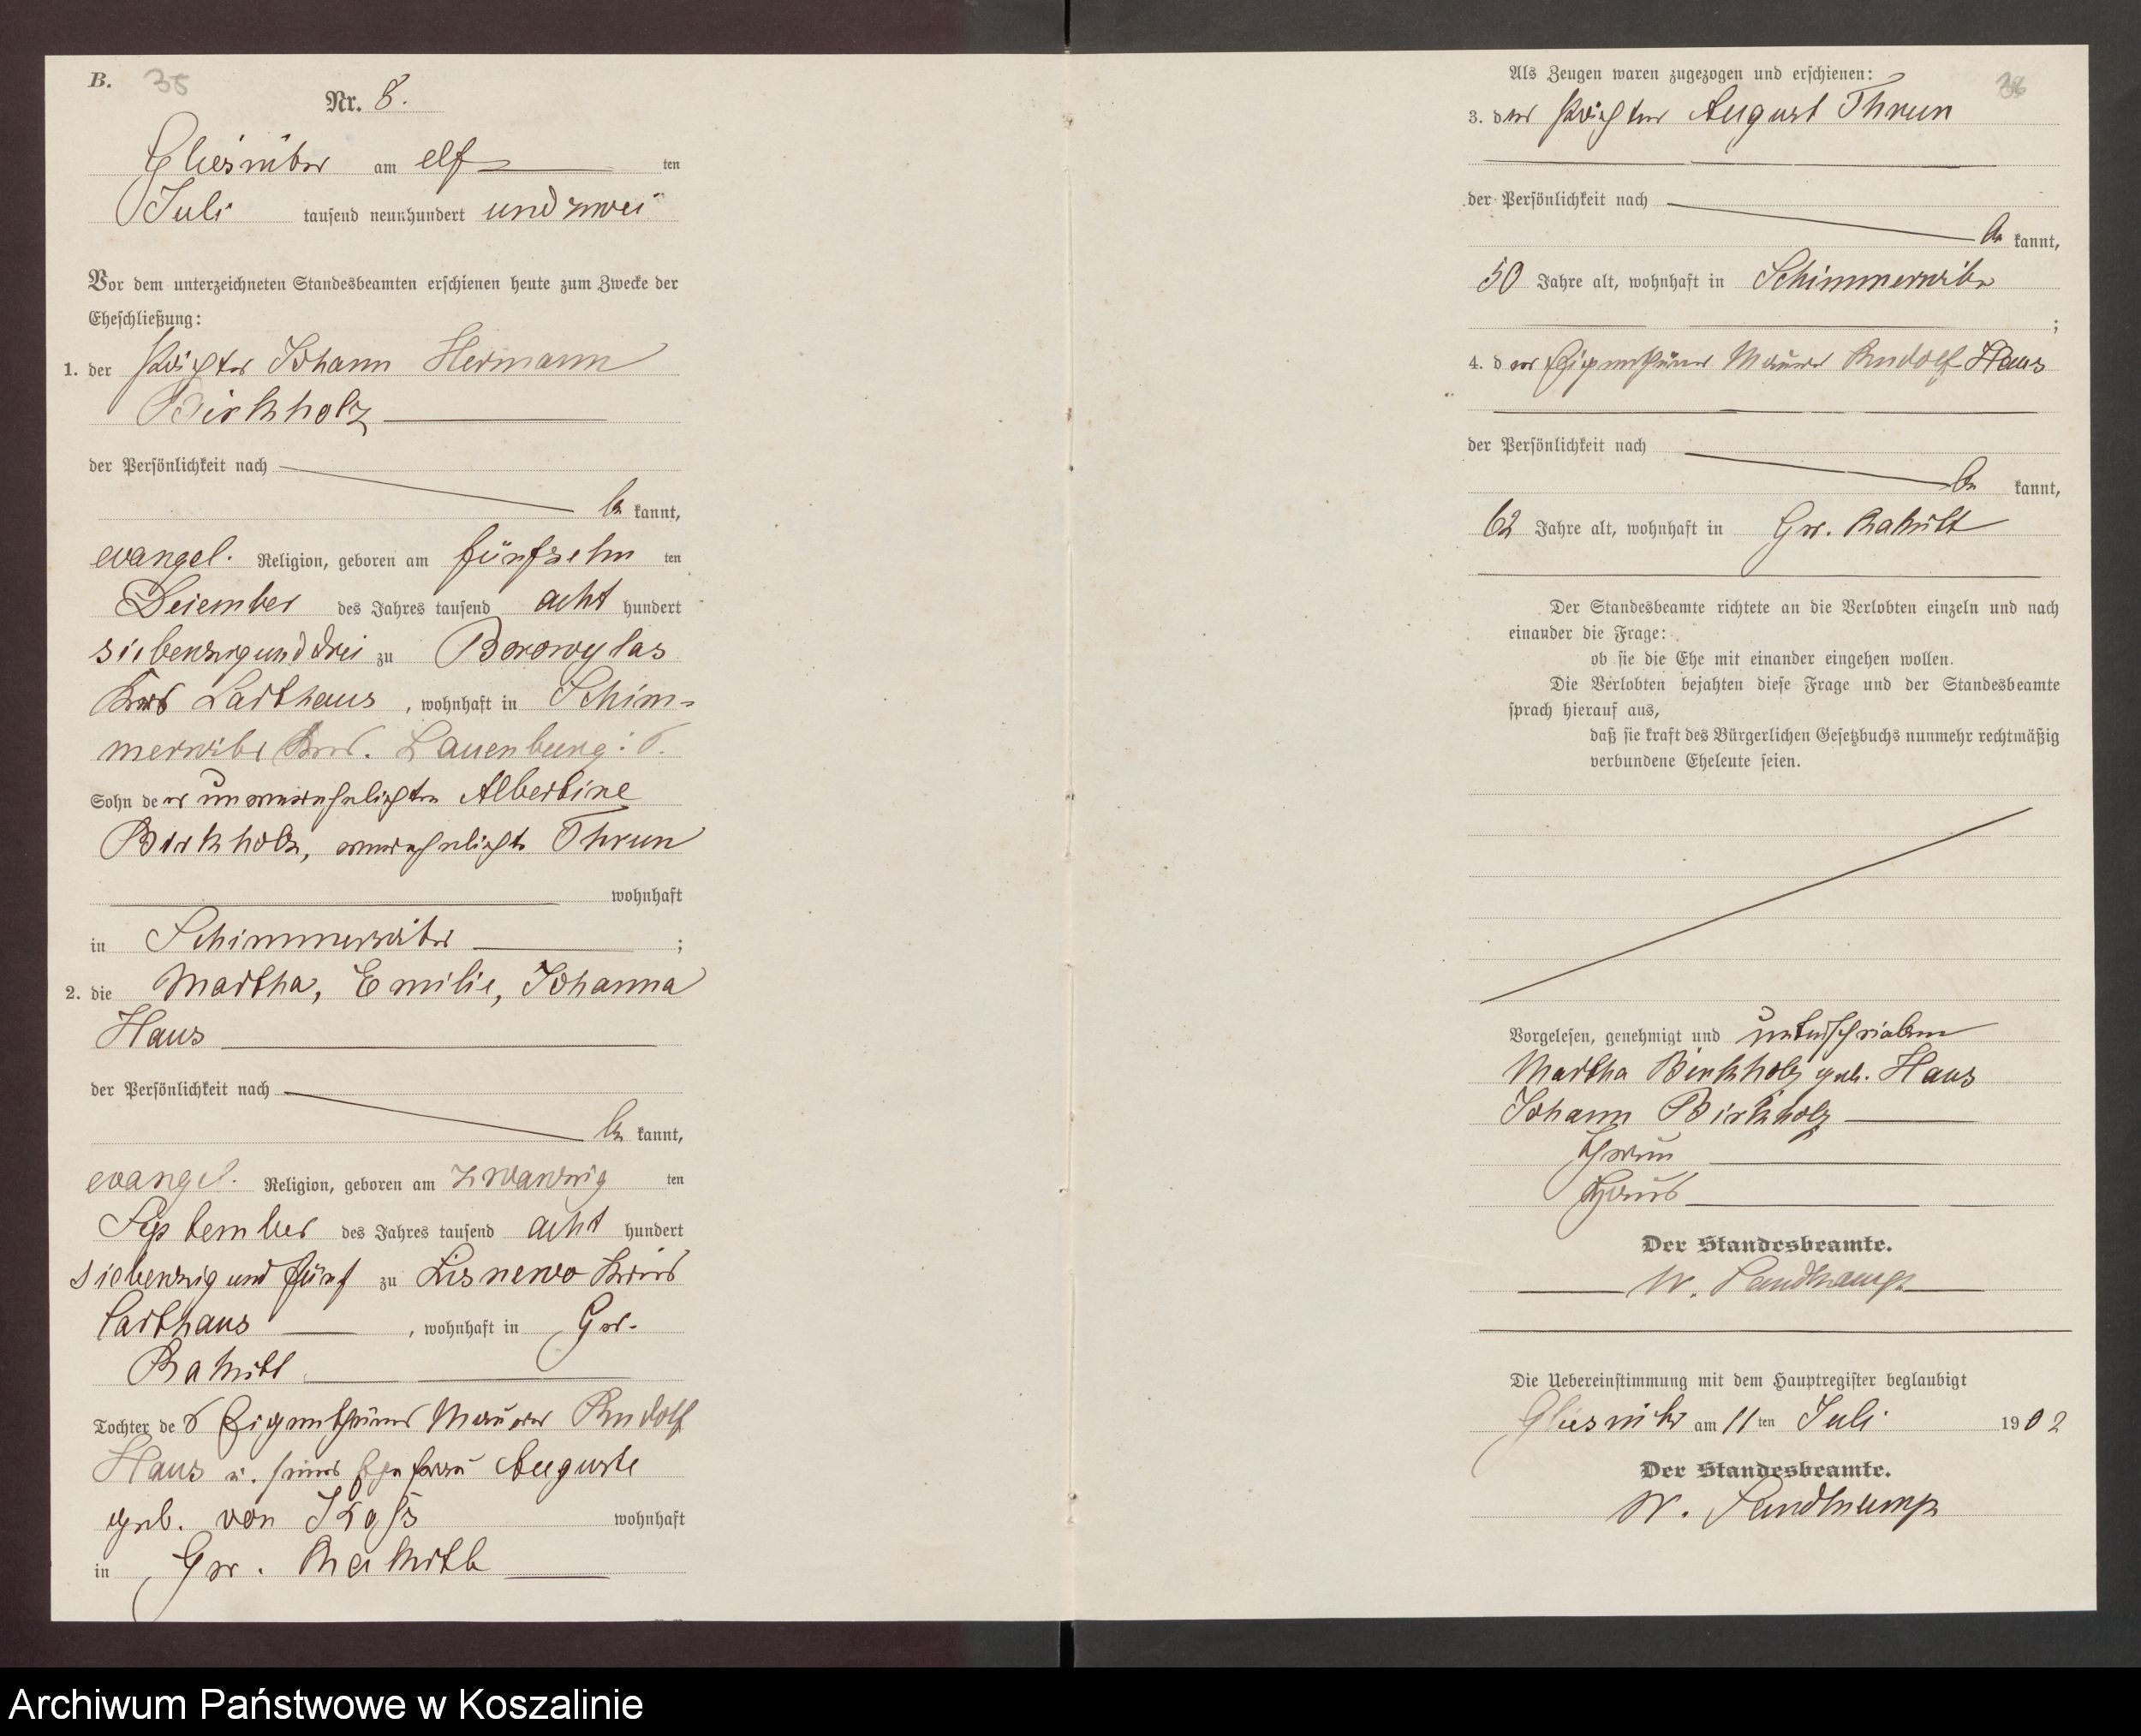 B. 35
Nr. 8.
Gliesnitz am elf ten
Juli tausend neunhundert und zwei
Vor dem unterzeichneten Standesbeamten erschienen heute zum Zwecke der
Eheschließung:
1. der Pächter Johann Hermann
Birkholz
der Persönlichkeit nach
be kannt,
evangel. Religion, geboren am fünfzehn ten
Dezember des Jahres tausend acht hundert
siebenzig und drei zu Borowylas
Kreis Carthaus, wohnhaft in Schim-
merwitz Kreis Lauenburg
Sohn der unverehelichten Albertine
Birkholz, verehelichte Thrun
wohnhaft
in Schimmerwitz ;
2. die Martha, Emilie, Johanna
Haus
der Persönlichkeit nach
be kannt,
evangel. Religion, geboren am zwanzig ten
September des Jahres tausend acht hundert
siebenzig und fünf zu Lisnewo Kreis
Carthaus, wohnhaft in Gr.
Rakitt
Tochter des Eigenthümer Maurer Rudolf
Haus u. seiner Ehefrau Auguste
geb. von
wohnhaft
in Gr. Rakitt
Als Zeugen waren zugezogen und erschienen:
3. der Pächter August Thrun
der Persönlichkeit nach
be kannt,
50 Jahre alt, wohnhaft in Schimmerwitz
;
4. der Eigenthümer Maurer Rudolf Haus
der Persönlichkeit nach
be kannt,
62 Jahre alt, wohnhaft in Gr. Rakitt
Der Standesbeamte richtete an die Verlobten einzeln und nach
einander die Frage:
ob sie die Ehe mit einander eingehen wollen.
Die Verlobten bejahten diese Frage und der Standesbeamte
sprach hierauf aus,
daß sie kraft des Bürgerlichen Gesetzbuchs nunmehr rechtmäßig
verbundene Eheleute seien.
Vorgelesen, genehmigt und unterschrieben
Martha Birkholz geb. Haus
Johann Birkholz
Thrun
Haus
Der Standesbeamte.
W. Sandkamp
Die Uebereinstimmung mit dem Hauptregister beglaubigt
Gliesnitz am 11 ten Juli 1902
Der Standesbeamte.
W. Sandkamp
Archiwum Państwowe w Koszalinie